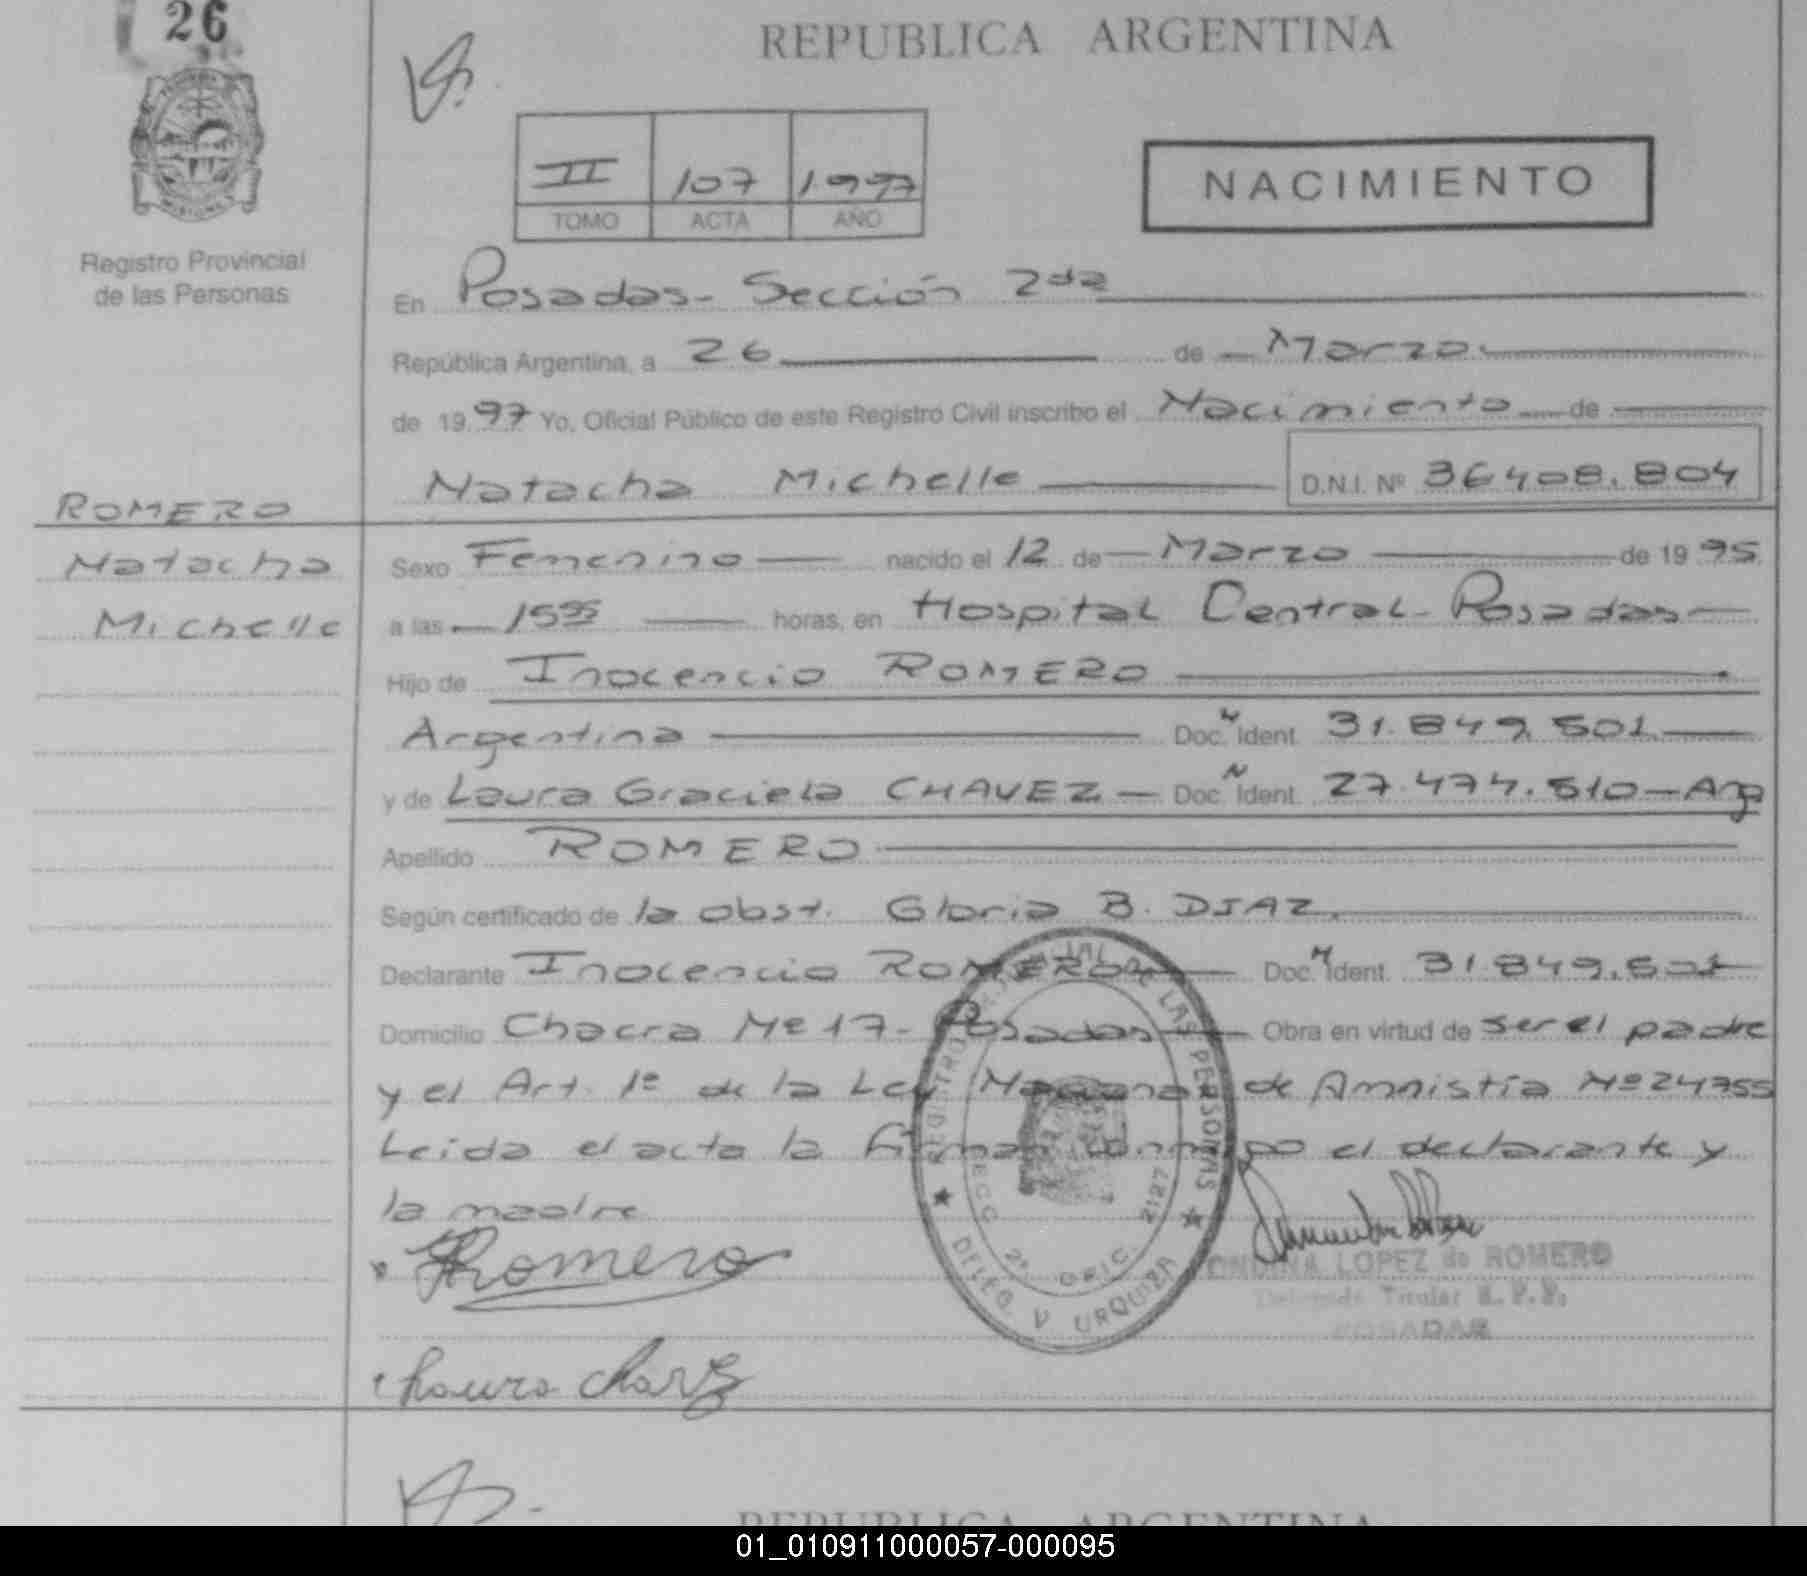 26
REPUBLICA ARGENTINA
II 107 1.997
TOMO ACTA AÑO
NACIMIENTO
MISIONES
Registro Provincial
de las Personas
En Posadas - Sección 2da
República Argentina, a 26 de Marzo
de 19 97 Yo, Oficial Público de este Registro Civil inscribo el Nacimiento de
Natacha Michelle D.N.I. Nº 36408.804
ROMERO
Natacha
Michelle
Sexo Femenino nacido el 12 de Marzo de 19 95
a las horas, en Hospital Central - Posadas
Hijo de Inocencio ROMERO
Argentina Doc. N Ident. 31.849.501
y de Laura Graciela CHAVEZ Doc. N Ident. 27.474.510 - Arg
Apellido ROMERO
Según certificado de la obst. Gloria B. DIAZ.
Declarante Inocencio ROMERO Doc. N Ident. 31.849.501
Domicilio Chacra Nº 17 - Posadas Obra en virtud de ser el padre
y el Art. 1º de la Ley de Amnistía Nº 24755
Leida el acta la firman conmigo el declarante y
la madre
Romero
Laura
REGISTRO PROVINCIAL DE LAS PERSONAS
SECC 2ª 2127
DELEG. V URQUIZA
ONDINA LOPEZ de ROMERO
Titular R.P.P.
POSADAS
REPUBLICA ARGENTINA
01_010911000057-000095